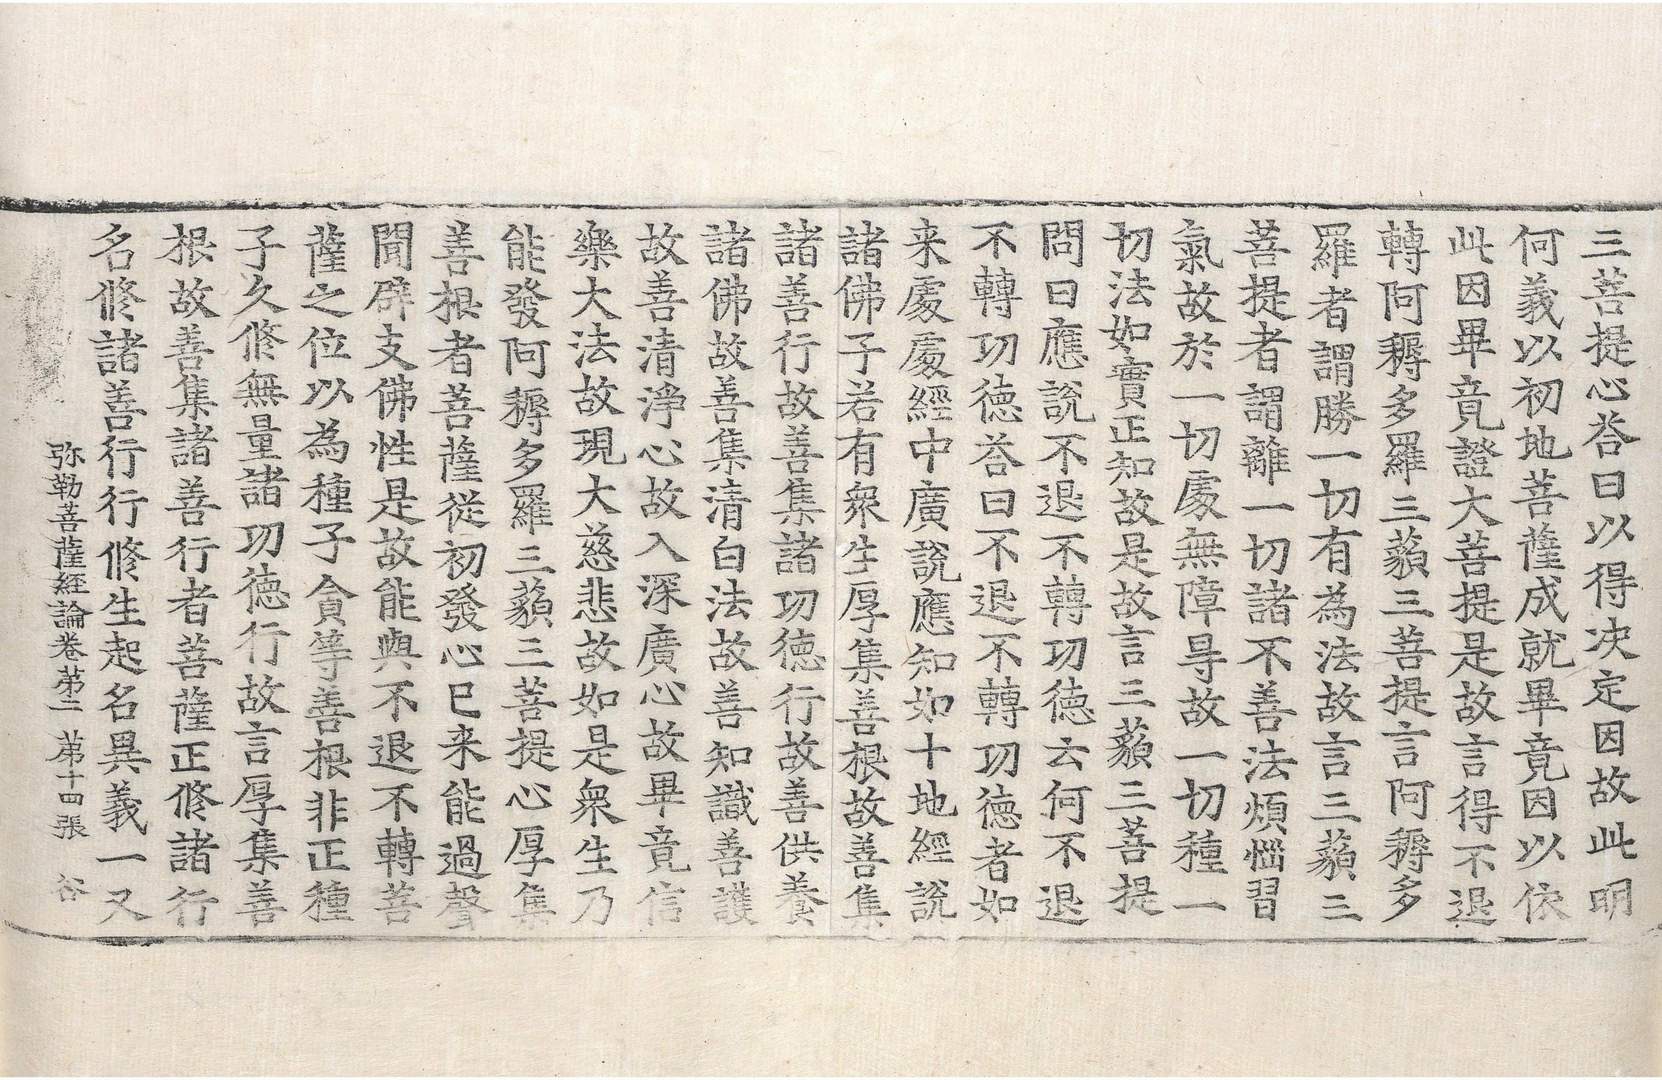 三菩提心荅曰以得决定因故此明
何義以初地菩薩成就畢竟因以依
此因畢竟證大菩提是故言得不退
轉阿耨多羅三藐三菩提言阿耨多
羅者謂勝一切有為法故言三藐三
菩提者謂離一切諸不善法煩惱習
氣故於一切處無障㝵故一切種一
切法如實正知故是故言三藐三菩提
問曰應說不退不轉功德云何不退
不轉功德荅曰不退不轉功德者如
来處處經中廣說應知如十地經說
諸佛子若有衆生厚集善根故善集
諸善行故善集諸功德行故善供養
諸佛故善集清白法故善知識善護
故善清淨心故入深廣心故畢竟信
樂大法故現大慈悲故如是衆生乃
能發阿耨多羅三藐三菩提心厚集
善根者菩薩從初發心已来能過聲
聞辟支佛性是故能與不退不轉菩
薩之位以為種子貪等善根非正種
子久修無量諸功德行故言厚集善
根故善集諸善行者菩薩正修諸行
名修諸善行行修生起名異義一又
弥勒菩薩經論卷第二 第十四張 谷